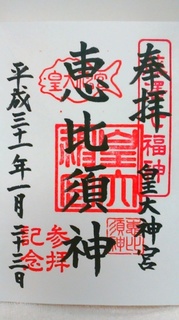 奉拝
皇大神宮
恵比須神
平成三十一年一月二十三日
福神
皇大神宮
参拝
記念